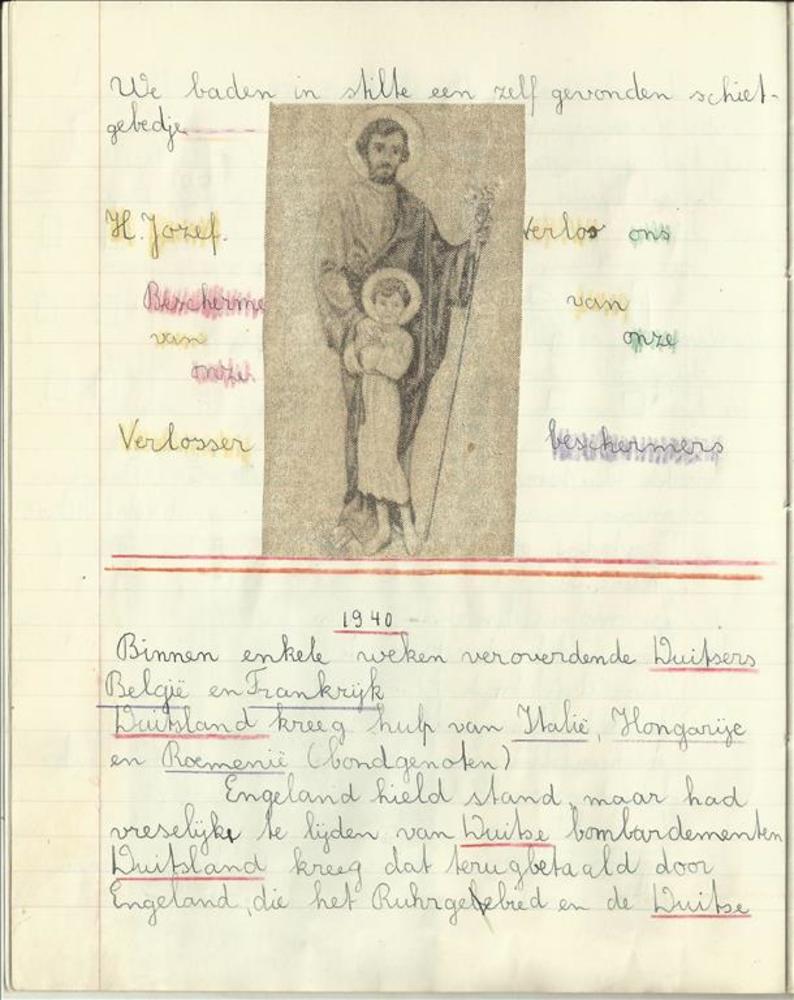 We baden in stilte een zelf gevonden schiet-
gebedje
H. Jozef. Verlos ons
Bescherme van
van onze
onze
Verlosser beschermers
1940
Binnen enkele weken veroverdende Duitsers
België en Frankrijk
Duitsland kreeg hulp van Italië, Hongarije
en Roemenië (bondgenoten)
Engeland hield stand, maar had
vreselijk te lijden van Duitse bombardementen
Duitsland kreeg dat terugbetaald door
Engeland, die het Ruhrgebied en de Duitse